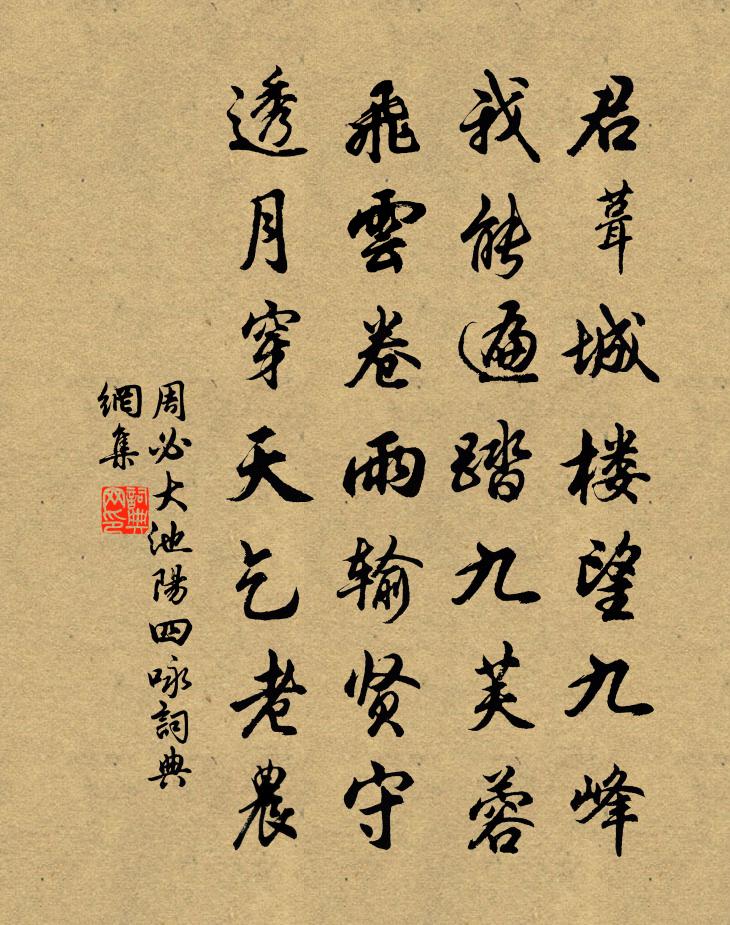 君葺城楼望九峰
我能遍踏九芙蓉
飛雲卷雨输贤守
透月穿天乞老農
周必大池陽四咏詞典
網集
詞典网印